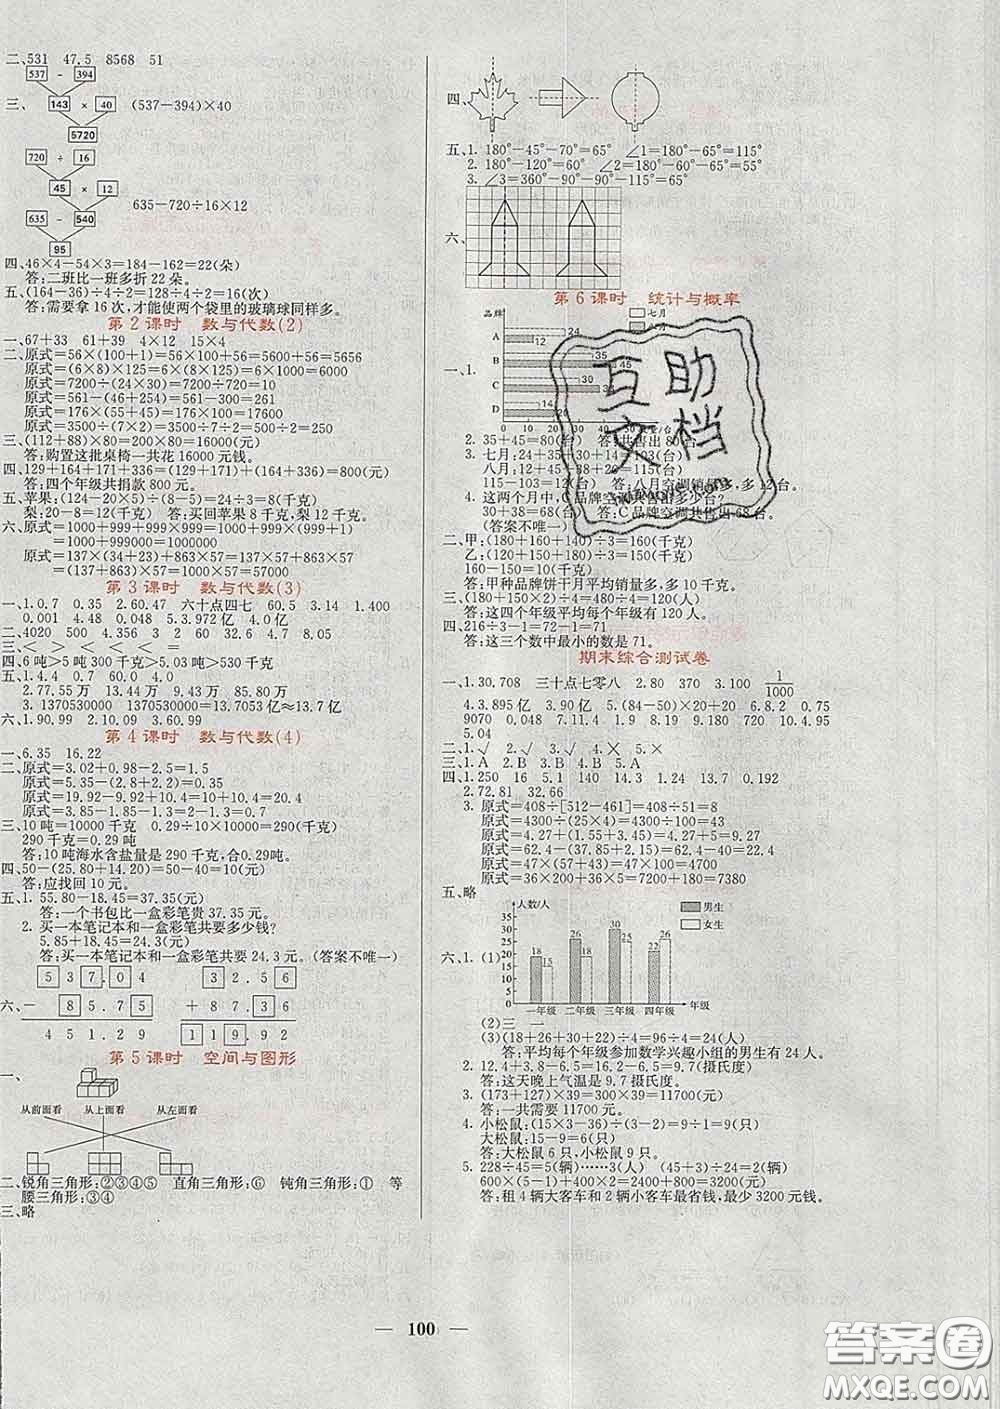 二、531 47.5 8568 51
537 - 394
三、 143 × 40 (537-394)×40
5720
720 ÷ 16
45 × 12
635-720÷16×12
635 - 540
95
四、46×4-54×3=184-162=22(朵)
答:二班比一班多折 22 朵。
五、(164-36)÷4÷2=128÷4÷2=16(次)
答:需要拿 16 次,才能使两个袋里的玻璃球同样多。
第 2 课时 数与代数(2)
一、67+33 61+39 4×12 15×4
二、原式=56×(100+1)=56×100+56=5600+56=5656
原式=(6×8)×125=6×(8×125)=6×1000=6000
原式=7200÷(24×30)=7200÷720=10
原式=561-(46+254)=561-300=261
原式=176×(55+45)=176×100=17600
原式=3500÷(7×2)=3500÷7÷2=500÷2=250
三、(112+88)×80=200×80=16000(元)
答:购置这批桌椅一共花 16000 元钱。
四、129+164+171+336=(129+171)+(164+336)=800(元)
答:四个年级共捐款 800 元。
五、苹果:(124-20×5)÷(8-5)=24÷3=8(千克)
梨:20-8=12(千克) 答:买回苹果 8 千克,梨 12 千克。
六、原式=1000+999+999×999=1000+999×(999+1)
=1000+999000=1000000
原式=137×(34+23)+863×57=137×57+863×57
=(137+863)×57=1000×57=57000
第 3 课时 数与代数(3)
一、1.0.7 0.35 2.60.47 六十点四七 60.5 3.14 1.400
0.001 4.48 0.048 5.3.972亿 4.0亿
二、4020 500 4.356 3 2 60 32.6 4.7 8.05
三、< < < < = <
四、6 吨>5 吨 300 千克>5.03 吨>530 千克
五、1.4.4 0.7 60.0 4.0
2.77.55 万 13.44 万 18.20 万 9.43 万
3.1370530000 1370530000=13.7053亿≈13.7亿
六、1.90.99 2.10.09 3.60.99
第 4 课时 数与代数(4)
一、6.35 16.22
二、原式=3.02+0.98-2.5=1.5
原式=5.35-(2.84+1.16)=1.35
原式=10.08-9.92+10.4=10+10.4=20.4
原式=3.85-1.85-1.3=2-1.3=0.7
三、10 吨=10000 千克 0.29÷10×10000=290(千克)
290千克=0.29 吨
答:10 吨海水含盐量是 290 千克,合0.29吨。
四、50-(25.80+14.20)=50-40=10(元)
答:应找回 10 元。
五、1. 55.80-18.45=37.35(元)
答:一个书包比一盒彩笔贵 37.35 元。
2. 买一本笔记本和一盒彩笔共要多少钱?
5.85+18.45=24.3(元)
答:买一本笔记本和一盒彩笔共要 24.3 元。(答案不唯一)
5 3 7.0 4 3 2.5 6
六、- 8 5.7 5 + 8 7.3 6
4 5 1.2 9 1 1 9.9 2
第 5 课时 空间与图形
一、
从前面看 从上面看 从左面看
二、锐角三角形:②③④⑤ 直角三角形:⑥ 钝角三角形:① 等
腰三角形:③④
三、略
四、
五、1. 180°-45°-70°=65° ∠1=180°-65°=115°
2. 180°-120°=60° ∠2=180°-60°-65°=55°
3. ∠3=360°-90°-90°-115°=65°
六、
第 6 课时 统计与概率
品牌 七月
A 24 12
B 35 45
一、1. C 30
D 14 20
0 10 20 30 40
2. 35+45=80(台) 答:共售出 80 台。
3. 七月:24+35+30+14=103(台)
115-103=12(台) 答:八月空调销量多,多 12 台。
4. 这两个月中,C 品牌空调共售出多少台?
30+38=68(台) 答:C 品牌空调共售出 68 台。
(答案不唯一)
二、甲:(180+160+140)÷3=160(千克)
乙:(120+150+180)÷3=150(千克)
160-150=10(千克)
答:甲种品牌饼干月平均销量多,多 10 千克。
三、(150×2+180)÷4=480÷4=120(人)
答:这四个年级平均每个年级有 120 人。
四、216÷3-1=72-1=71
答:这三个数中最小的数是 71。
期末综合测试卷
一、1.30.708 三十点七零八 2.80 370 3.100 1/1000
4.3.895亿 3.90亿 5.(84-50)×20+20 6.8.2 0.75
9070 0.048 7.115 8.19 9.720 18 10.4.95
5.04
二、1.√ 2.√ 3.√ 4.× 5.×
三、1.A 2.B 3.A 4.B 5.A
四、1.250 16 5.1 140 14.3 1.24 13.7 0.192
2.72.81 32.66
3. 原式=408÷[512-461]=408÷51=8
原式=4300÷(25×4)=4300÷100=43
原式=4.27+(1.55+3.45)=4.27+5=9.27
原式=62.4-(37.85+2.15)=62.4-40=22.4
原式=47×(57+43)=47×100=4700
原式=36×200+36×5=7200+180=7380
五、略
人数/人 男生
女生
35
30 30
25 26 24 26
20 18 18 22
六、1. (1) 15 15
10
5
0 一年级 二年级 三年级 四年级 年级
(2)三 一
(3)(18+26+30+22)÷4=96÷4=24(人)
答:平均每个年级参加数学兴趣小组的男生有 24 人。
2. 12.4+3.8-6.5=16.2-6.5=9.7(摄氏度)
答:这天晚上气温是 9.7 摄氏度。
3. (173+127)×39=300×39=11700(元)
答:一共需要 11700 元。
4. 小松鼠:(15×3-36)÷(3-2)=9÷1=9(只)
大松鼠:15-9=6(只)
答:大松鼠 6 只,小松鼠 9 只。
5. 228÷45=5(辆)……3(人) (45+3)÷24=2(辆)
600×(5-1)+400×2=2400+800=3200(元)
答:租 4 辆大客车和 2 辆小客车最省钱,最少 3200 元钱。
— 100 —
互助
文档
答案圈
MXQE.COM